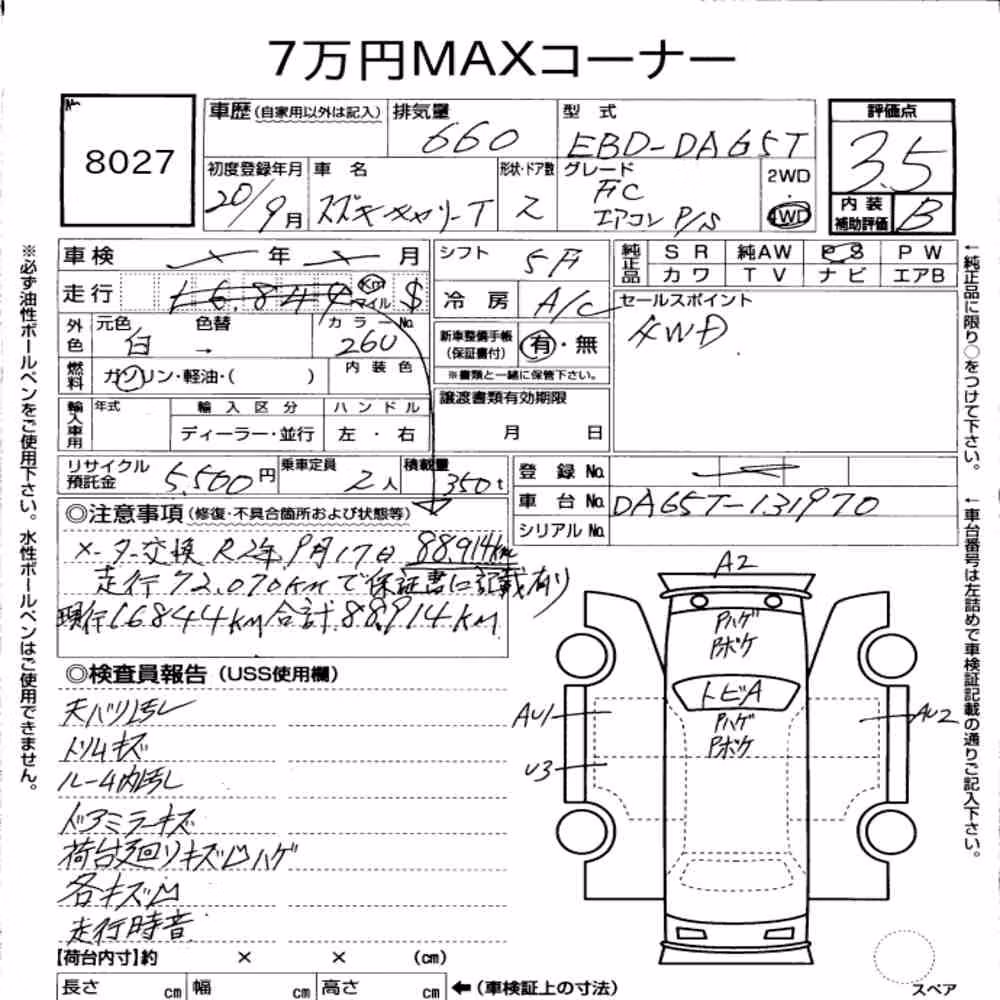 7万円MAXコーナー
No.
8027
車歴 (自家用以外は記入)
排気量
660
型 式
EBD-DA65T
評価点
3.5
初度登録年月
20/9月
車 名
スズキ キャリーT
形状・ドア数
2
グレード
FC
エアコン P/S
2WD
・
4WD
内 装
補助評価
B
車検 年 月
シフト
5F
純正品
S R 純AW P S P W
カ ワ T V ナ ビ エアB
走行 16,844 Km マイル $
冷 房
A/C
セールスポイント
4WD
外色
元色 白
色替 →
カラーNo.
260
新車整備手帳
(保証書付)
有・無
※書類と一緒に保管下さい。
燃料
ガソリン・軽油・( )
内 装 色
輸入車用
年式
輸 入 区 分
ハ ン ド ル
ディーラー・並行
左 ・ 右
譲渡書類有効期限
月 日
リサイクル
預託金
5,560円
乗車定員
2人
積載量
350t
登 録 No.
車 台 No.
DA65T-131970
シリアル No.
◎注意事項 (修復・不具合箇所および状態等)
メーター交換 R2年9月17日 88,914km
走行72,070kmで保証書に記載有り
現行16844KM 合計88,914KM
◎検査員報告 (USS使用欄)
天バリ汚レ
トリムキズ
ルーム内汚レ
ドアミラーキズ
荷台廻リキズ凹ハゲ
各キズ凹
走行時音
【荷台内寸】約 × × (cm)
長さ cm 幅 cm 高さ cm
←(車検証上の寸法)
A2
Pハゲ
Pボケ
トビA
Pハゲ
Pボケ
AU1
AU2
U3
スペア
※必ず油性ボールペンをご使用下さい。水性ボールペンはご使用できません。
←純正品に限り○をつけて下さい。
←車台番号は左詰めで車検証記載の通りご記入下さい。